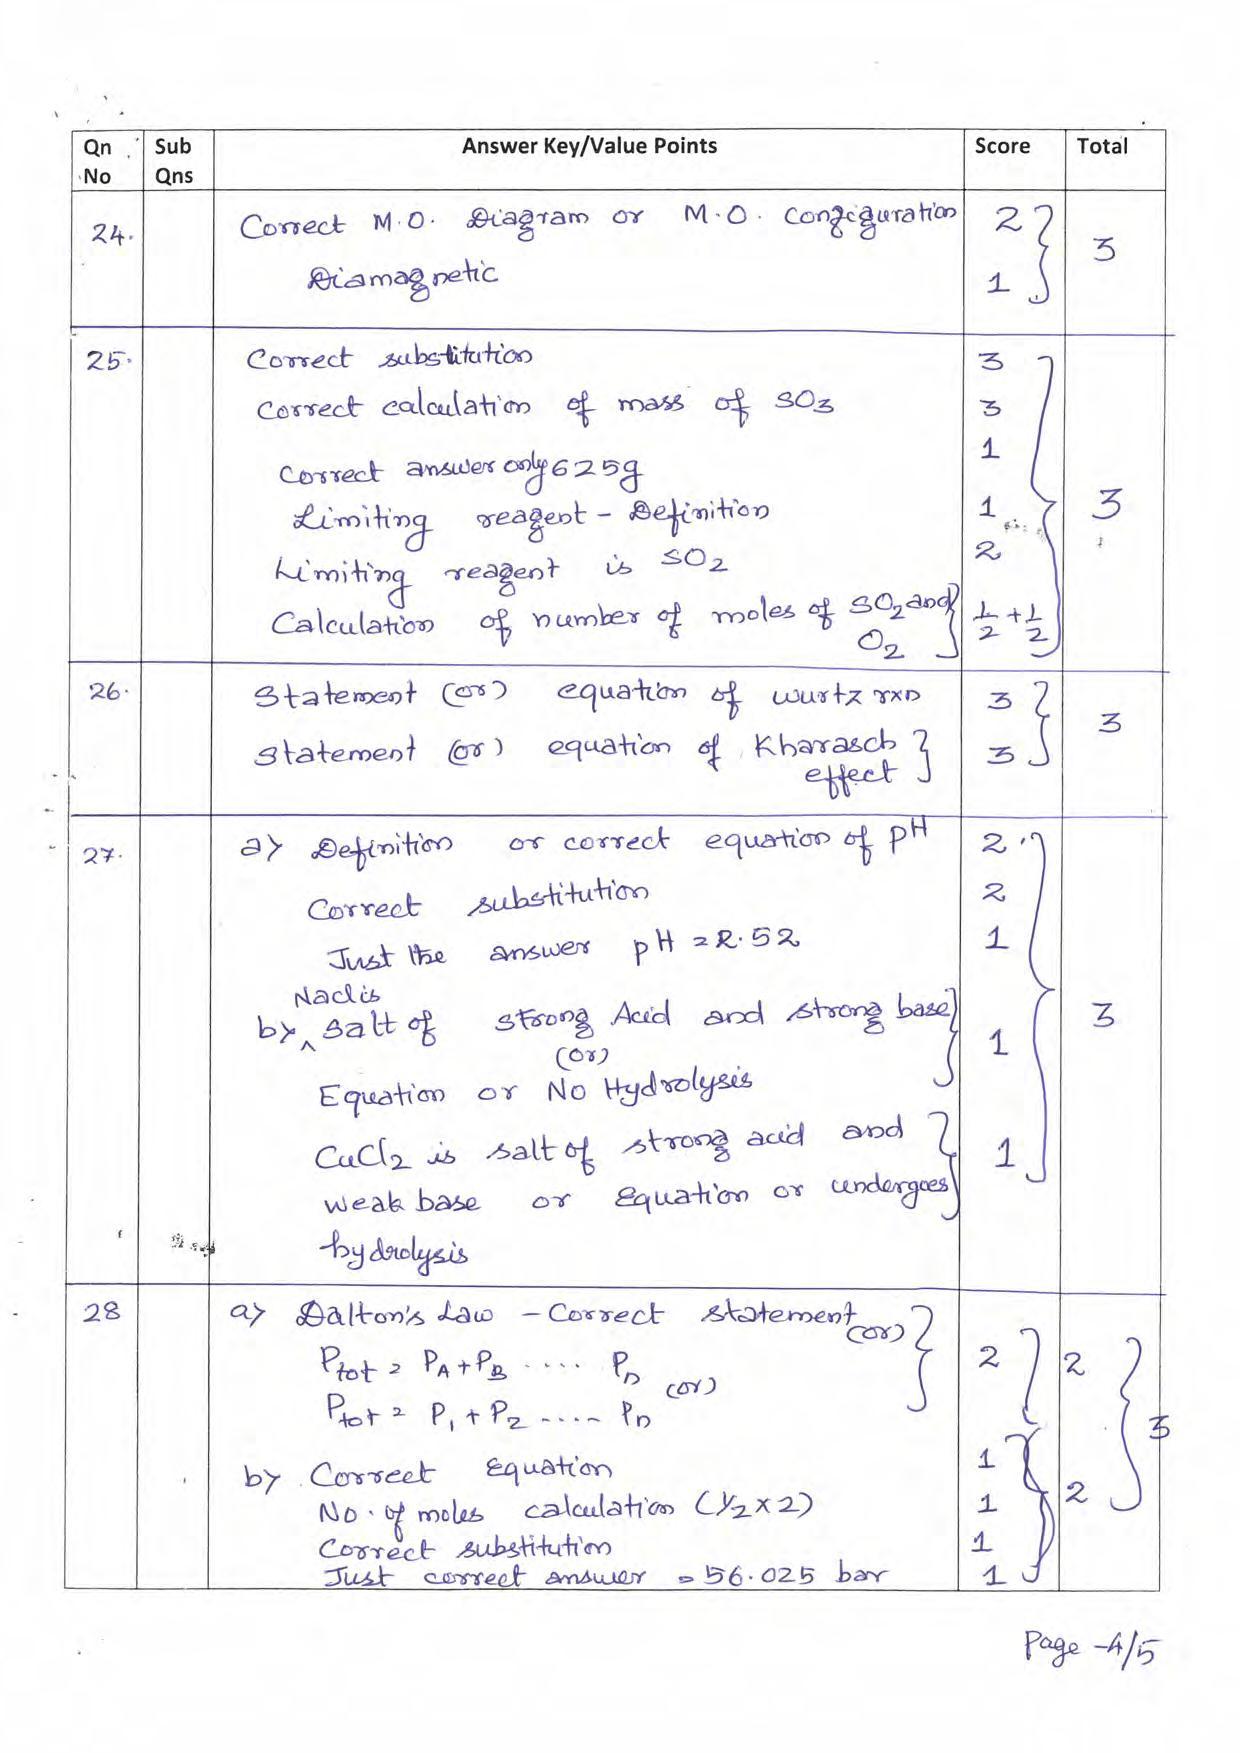 Qn No Sub Qns Answer Key/Value Points Score Total
24. Correct M.O. Diagram or M.O. Configuration 2
Diamagnetic 1
3
25. Correct substitution 3
Correct calculation of mass of SO3 3
Correct answer only 625g 1
Limiting reagent - Definition 1
Limiting reagent is SO2 2
Calculation of number of moles of SO2 and O2 1/2 + 1/2
3
26. Statement (or) equation of wurtz rxn 3
Statement (or) equation of Kharasch effect 3
3
27. a) Definition or correct equation of pH 2
Correct substitution 2
Just the answer pH = 2.52 1
NaCl is
b) salt of strong Acid and strong base
(or)
Equation or No Hydrolysis 1
CuCl2 is salt of strong acid and
weak base or Equation or undergoes 1
hydrolysis
3
28 a) Dalton's Law - Correct statement (or)
Ptot = PA + PB ..... Pn (or) 2 2
Ptot = P1 + P2 ..... Pn
3
b) Correct Equation 1
No. of moles calculation (1/2 x 2) 1 2
Correct substitution 1
Just correct answer = 56.025 bar 1
Page -4/5